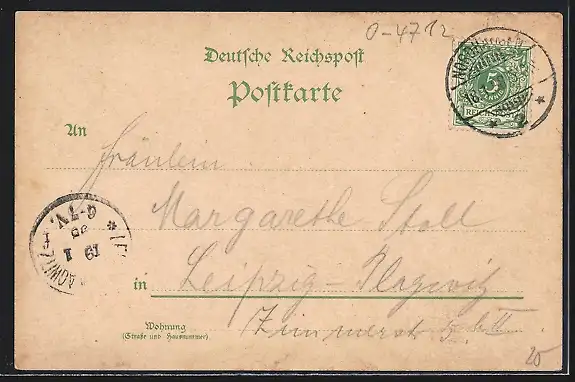 0-4712
Deutsche Reichspost
Postkarte
5
REICHSPOST
2
An
Fräulein
Margarethe Stoll
in Leipzig-Plagwitz
Wohnung
(Straße und Hausnummer)
Zimmerstr
6-7V.
19 1
20